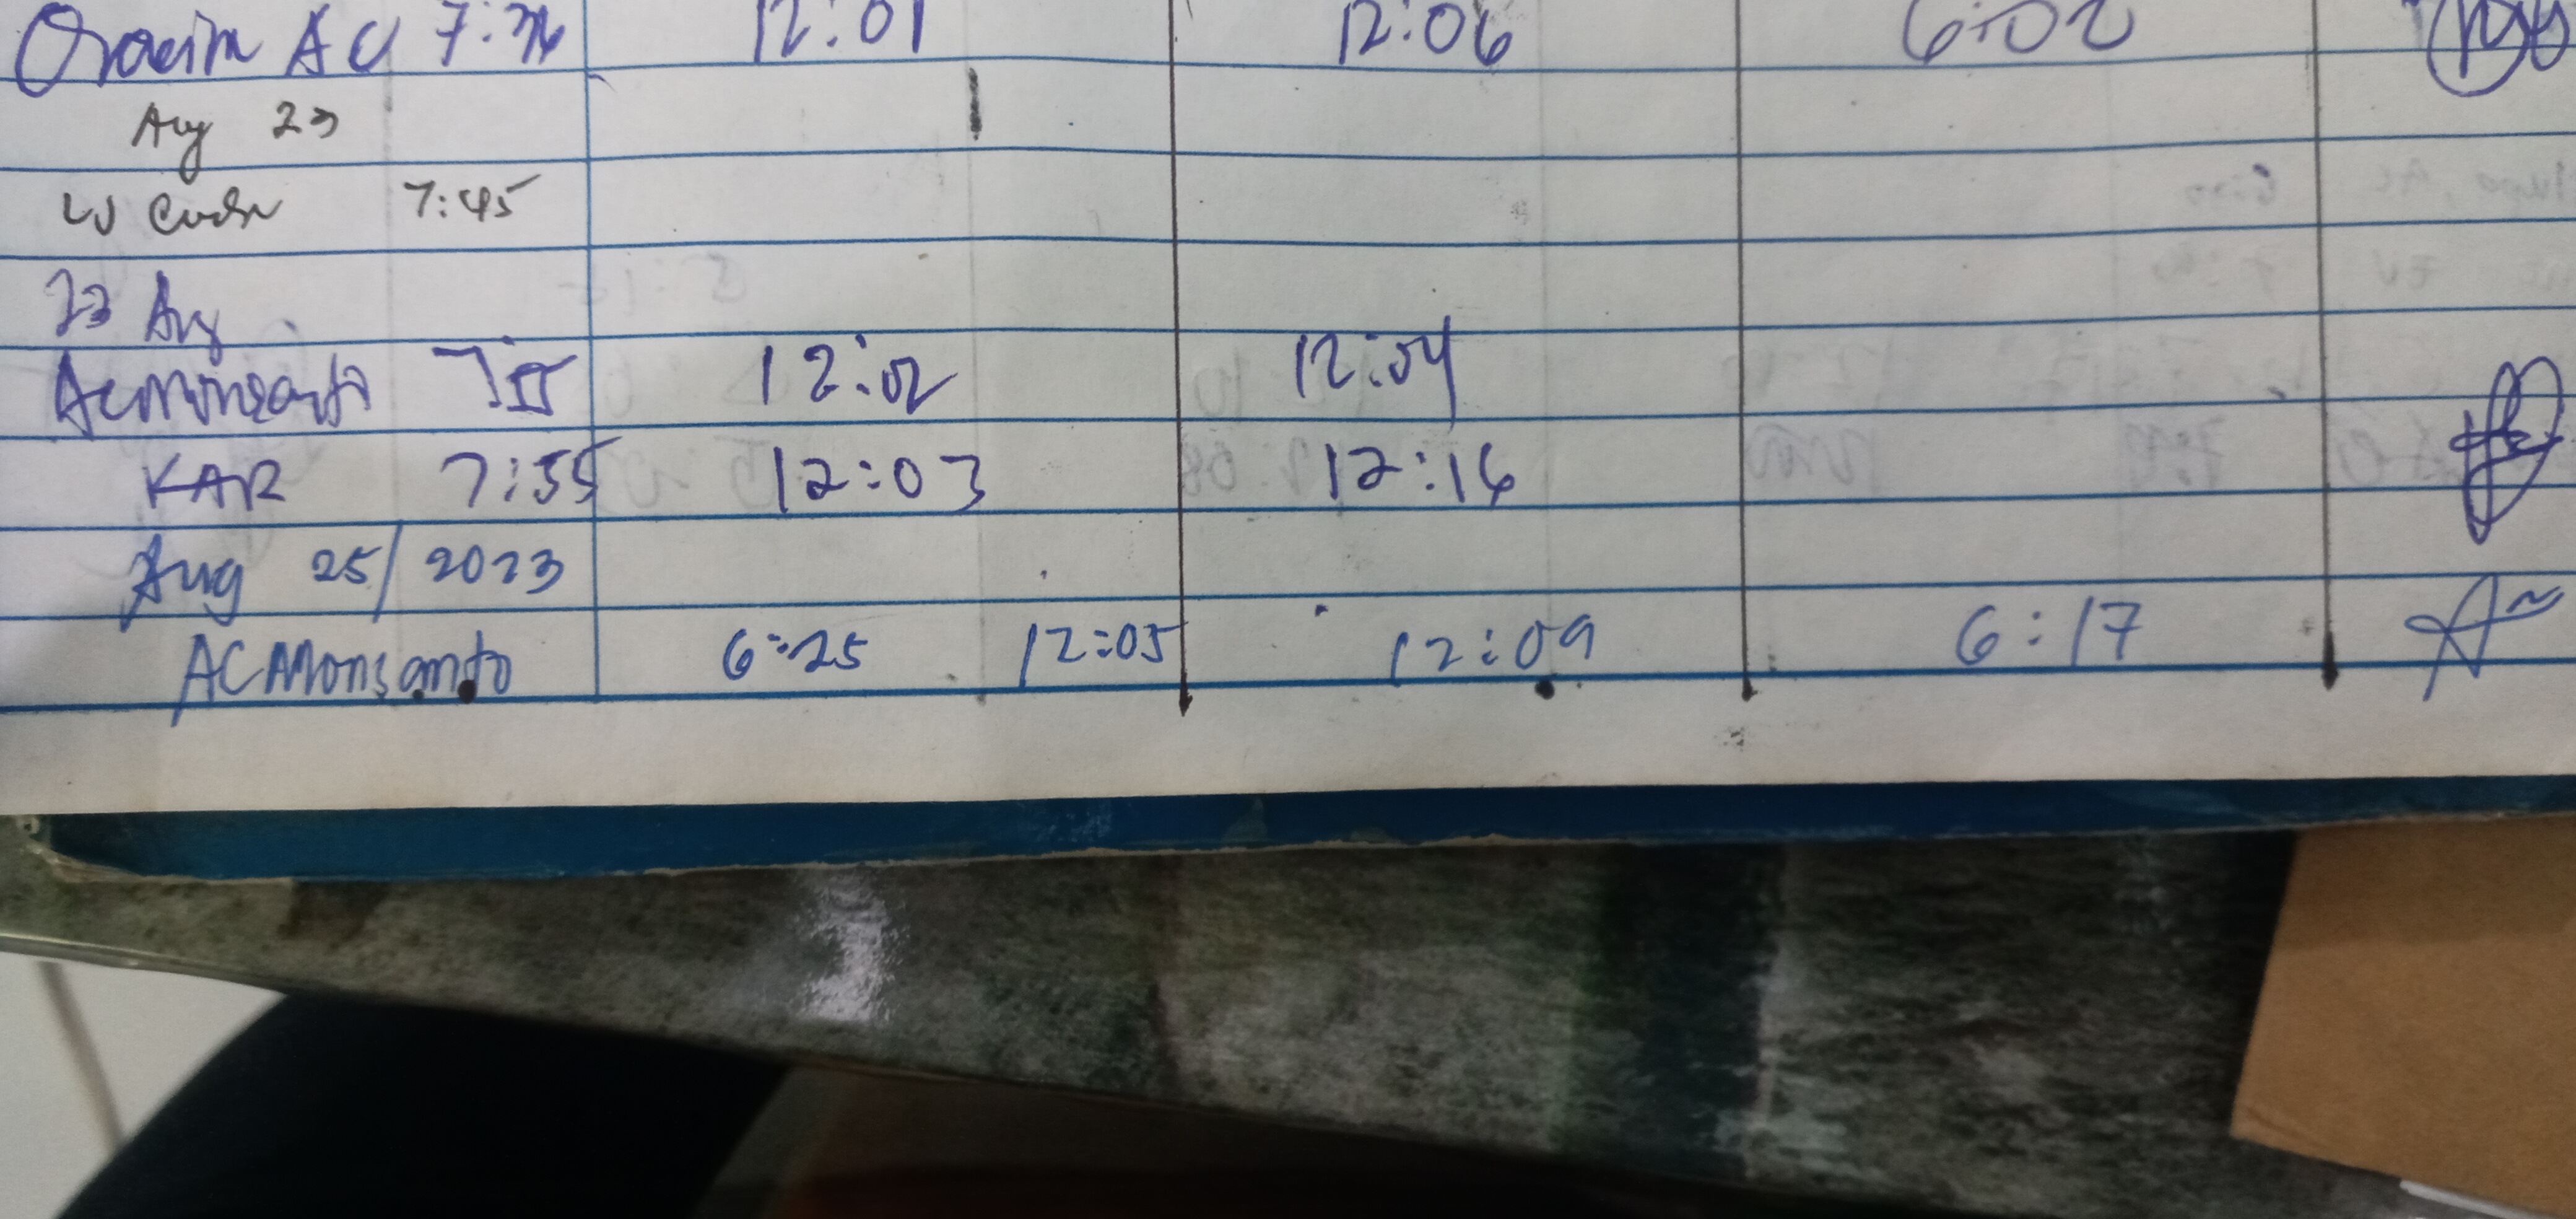 AC 12:01 12:06 6:02
Aug 23
7:45
23 Aug
ACMonsanto 7:55 12:02 12:04
KAR 7:55 12:03 12:16
Aug 25/2023
ACMonsanto 6:25 12:05 12:09 6:17